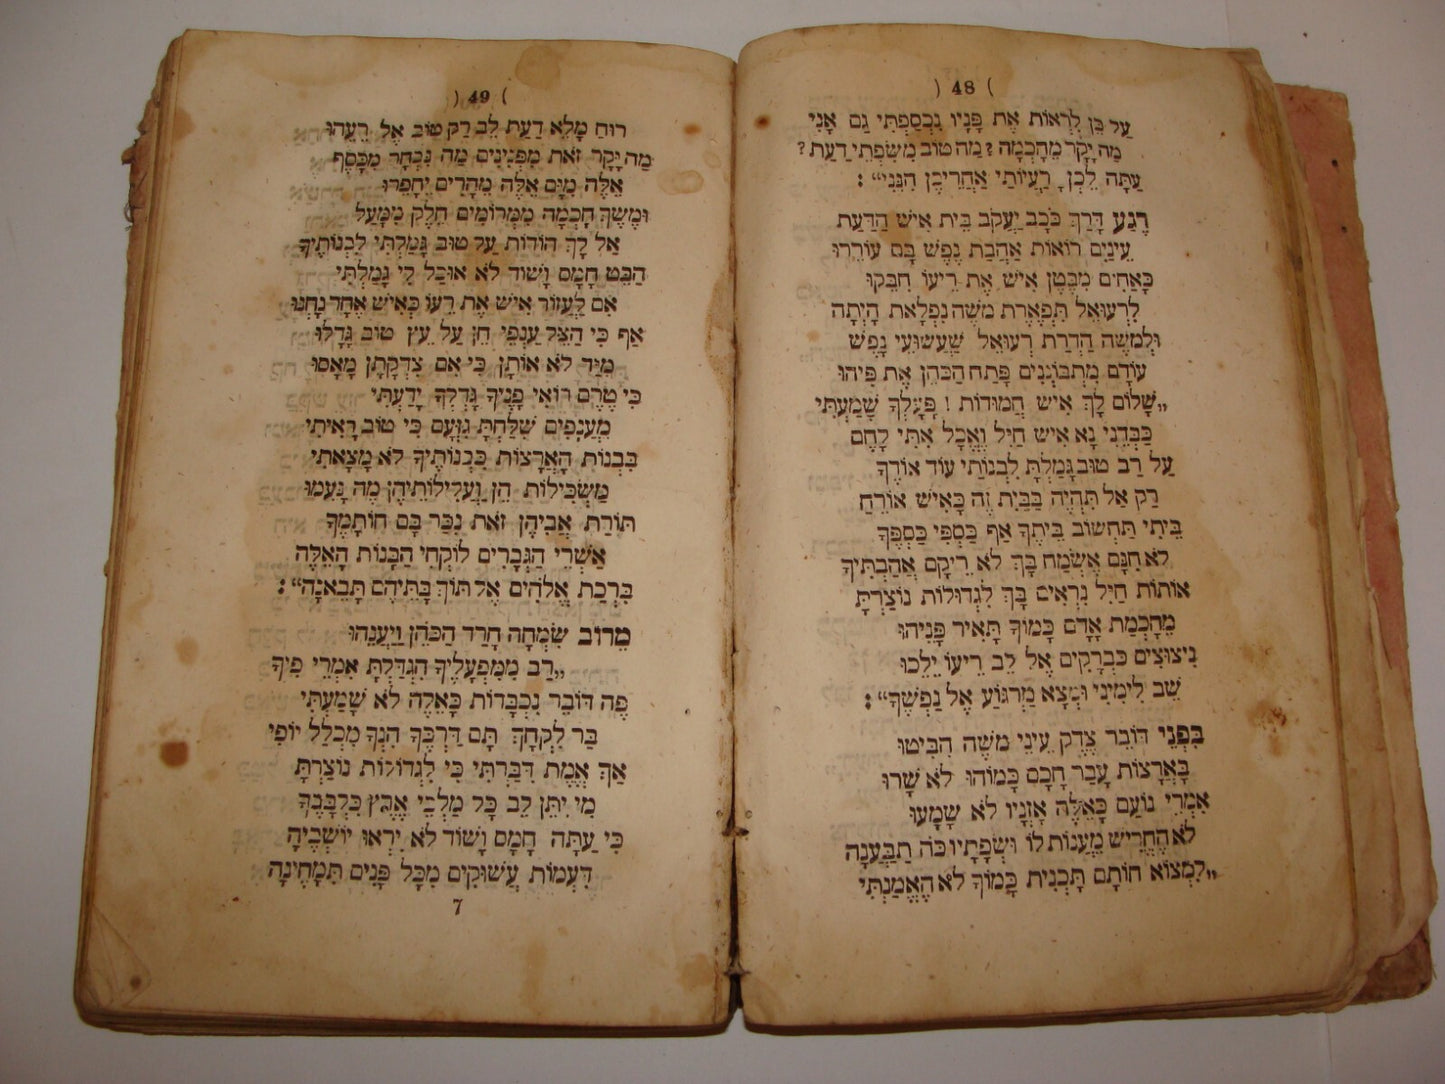 ( 48 )
עַל כֵּן לִרְאוֹת אֶת פָּנָיו נִכְסַפְתִּי גַם אָנִי
מַה יָּקָר מֵחָכְמָה? מַה טוֹב מִשִּׂפְתֵי דַעַת?
עַתָּה לֵכְן, רַעְיוֹתַי אַחֲרֵיכֶן הִנֵּנִי“:
רֶגַע דָּרַךְ כֹּכָב יַעֲקֹב בֵּית אִישׁ הַדַּעַת
עֵינַיִם רוֹאוֹת אַהֲבַת נֶפֶשׁ בָּם עוֹרֵרוּ
כָּאַחִים מִבֶּטֶן אִישׁ אֶת רֵיעוֹ חִבֵּקוּ
לִרְעוּאֵל תִּפְאֶרֶת מֹשֶׁה נִפְלָאת הָיְתָה
וּלְמֹשֶׁה הַדְרַת רְעוּאֵל שַׁעֲשׁוּעֵי נָפֶשׁ
עוֹדָם מִתְבּוֹנְנִים פָּתַח הַכֹּהֵן אֶת פִּיהוּ
„שָׁלוֹם לָךְ אִישׁ חֲמוּדוֹת! פָּעָלְךָ שָׁמַעְתִּי
כַּבְּדֵנִי נָא אִישׁ חַיִל וֶאֱכָל אִתִּי לָחֶם
עַל רַב טוּב גָּמַלְתָּ לִבְנוֹתַי עוֹד אוֹדֶךָּ
רַק אַל תִּהְיֶה בַּבַּיִת זֶה כָּאִישׁ אוֹרֵחַ
בֵּיתִי תַּחְשׁוֹב בֵּיתֶךָ אַף כַּסְפִּי כַּסְפֶּךָ
לֹא חִנָּם אֶשְׂמַח בָּךְ לֹא רֵיקָם אֲהַבְתִּיךָ
אוֹתוֹת חַיִל נִרְאִים בָּךְ לִגְדוּלוֹת נוֹצַרְתָּ
מֵחָכְמַת אָדָם כָּמוֹךָ תָּאִיר פָּנֵיהוּ
נִיצוּצִים כִּבְרָקִים אֶל לֵב רֵיעוֹ יֵלֵכוּ
שֵׁב לִימִינִי וּמְצָא מַרְגּוֹעַ אֶל נַפְשֶׁךָ“:
בִּפְנֵי דּוֹבֵר צֶדֶק עֵינֵי מֹשֶׁה הִבִּיטוּ
בָּאֲרָצוֹת עָבַר חָכָם כָּמוֹהוּ לֹא שָׁרוּ
אִמְרֵי נוֹעַם כָּאֵלֶּה אָזְנָיו לֹא שָׁמָעוּ
לֹא הֶחֱרִישׁ מֵעֲנוֹת לוֹ וּשְׂפָתָיו כֹּה תַבַּעְנָה
„לִמְצוֹא חוֹתָם תָּכְנִית כָּמוֹךָ לֹא הֶאֱמַנְתִּי
( 49 )
רוּחַ מָלֵא דַעַת לֵב רַק טוֹב אֶל רֵעֵהוּ
מַה יָּקָר זֹאת מִפְּנִינִים מַה נִּבְחָר מִכָּסֶף
אֵלֶּה מִיָּם אֵלֶּה מֵהָרִים יֶחְפֵּרוּ
וּמֶשֶׁךְ חָכְמָה מִמְּרוֹמִים חֵלֶק מִמָּעַל
אַל לָךְ הוֹדוֹת עַל טוּב גָּמַלְתִּי לִבְנוֹתֶיךָ
הַבֵּט חָמָס וָשׁוֹד לֹא אוּכַל לִי גָּמַלְתִּי
אִם לַעֲזוֹר אִישׁ אֶת רֵעוֹ כְּאִישׁ אֶחָד נָחְנוּ
אַף כִּי הַצֵּל עַנְפֵי חֵן עַל עֵץ טוֹב גָּדָלוּ
מִיַּד לֹא אוֹתָן כִּי אִם צִדְקָתָן מָאָסוּ
כִּי טֶרֶם רוֹאִי פָנֶיךָ גָּדְלְךָ יָדַעְתִּי
מֵעֲנָפִים שִׁלַּחְתָּ גִּזְעָם כִּי טוֹב רָאִיתִי
בִּבְנוֹת הָאֲרָצוֹת כִּבְנוֹתֶיךָ לֹא מָצָאתִי
מַשְׂכִּילוֹת הֵן וַעֲלִילוֹתֵיהֶן מֶה נָּעֵמוּ
תּוֹרַת אֲבִיהֶן זֹאת נִכַּר בָּם חוֹתָמֶךָ
אַשְׁרֵי הַגְּבָרִים לוֹקְחֵי הַבָּנוֹת הָאֵלֶּה
בִּרְכַּת אֱלֹהִים אֶל תּוֹךְ בָּתֵּיהֶם תָּבֵאנָה“:
מֵרוֹב שִׂמְחָה חָרַד הַכֹּהֵן וַיַּעֲנֵהוּ
„רַב מִמִּפְעָלֶיךָ הִגְדַּלְתָּ אִמְרֵי פִיךָ
פֶּה דּוֹבֵר נִכְבָּדוֹת כָּאֵלֶּה לֹא שָׁמַעְתִּי
בַּר לִקְחָךְ תָּם דַּרְכֶּךָ הִנְּךָ מִכְלַל יוֹפִי
אַךְ אֱמֶת דִּבַּרְתִּי כִּי לִגְדוֹלוֹת נוֹצַרְתָּ
מִי יִתֵּן לֵב כָּל מַלְכֵי אֶרֶץ כִּלְבָבֶךָ
כִּי עַתָּה חָמָס וָשׁוֹד לֹא יִרְאוּ יוֹשְׁבֶיהָ
דִּמְעוֹת עֲשׁוּקִים מִכָּל פָּנִים תִּמָּחֶינָה
7